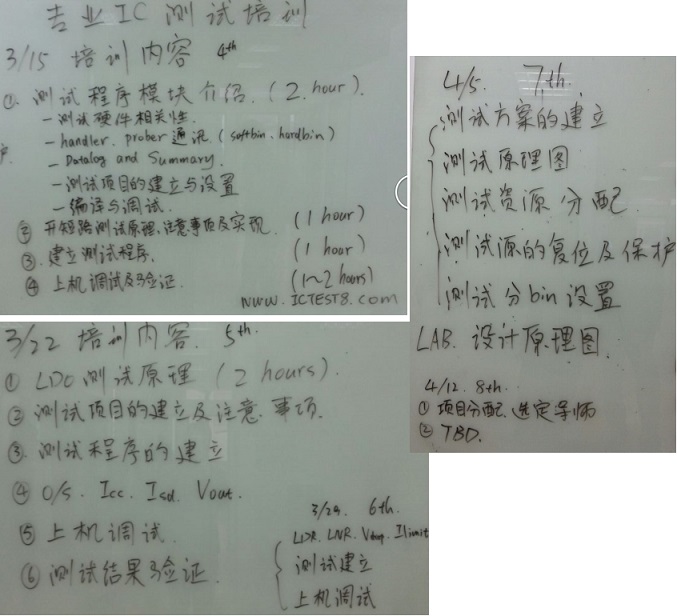 专业IC测试培训
3/15 培训内容 4th
① 测试程序模块介绍.(2 hour)
—测试硬件相关性.
—handler、prober通讯(softbin、hardbin)
—Datalog and Summary.
—测试项目的建立与设置
—编译与调试.
② 开短路测试原理、注意事项及实现. (1 hour)
③ 建立测试程序. (1 hour)
④ 上机调试及验证. (1~2 hours)
www.ICTEST8.com
3/22 培训内容. 5th.
① LDO测试原理 (2 hours).
② 测试项目的建立及注意事项.
③ 测试程序的建立
④ O/S. Icc. Isd. Vout.
⑤ 上机调试.
⑥ 测试结果验证.
3/29. 6th.
LDR. LNR. Vdrop. Ilimit
测试建立
上机调试
4/5. 7th.
测试方案的建立
测试原理图
测试资源分配.
测试源的复位及保护
测试分bin设置
LAB. 设计原理图.
4/12. 8th.
① 项目分配.选定导师
② TBD.